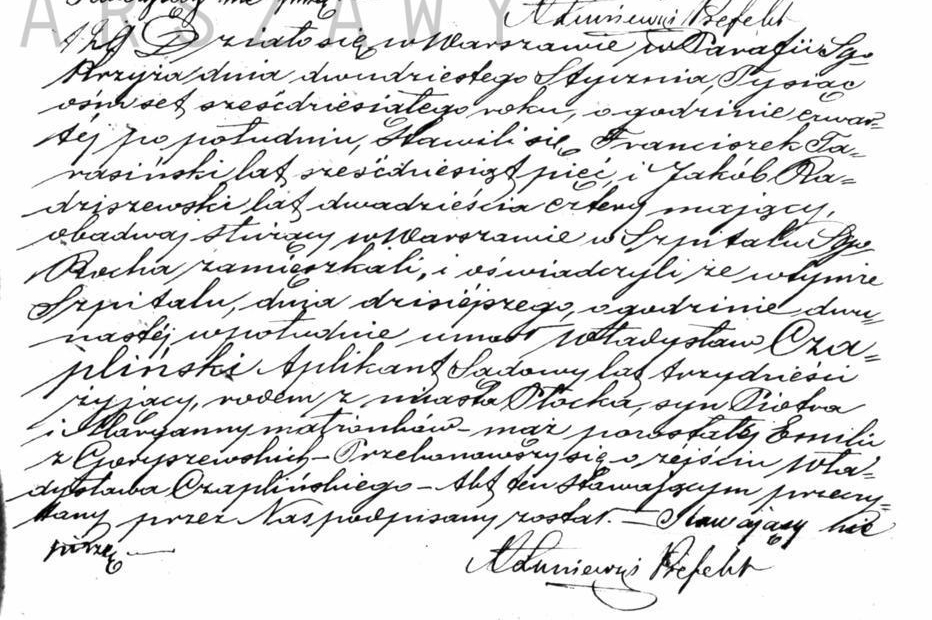 ARSZAWY
ALuniewski Prefekt
129 Działo się w Warszawie w Parafii Sgo
Krzyża dnia dwudziestego Stycznia, Tysiąc
ośmset sześćdziesiątego roku, o godzinie czwar=
tej po południu, Stawili się Franciszek Ta=
rasiński lat sześćdziesiąt pięć, i Jakób Ra=
dziszewski lat dwadzieścia cztery mający,
obadwaj służący w Warszawie w Szpitalu Sgo
Rocha zamieszkali, i oświadczyli że w tymże
Szpitalu, dnia dzisiejszego, o godzinie dwu=
nastej w południe umarł Władysław Cza=
pliński Aplikant Sądowy lat trzydzieści
żyjący, rodem z miasta Płocka, syn Piotra
i Maryanny małżonków – mąż pozostałej Emilii
z Goryszewskich – Przekonawszy się o zejściu Wła=
dysława Czaplińskiego – Akt ten Stawającym przeczy=
tany przez Nas podpisany został. – Stawający nie
piszą –
ALuniewski Prefekt